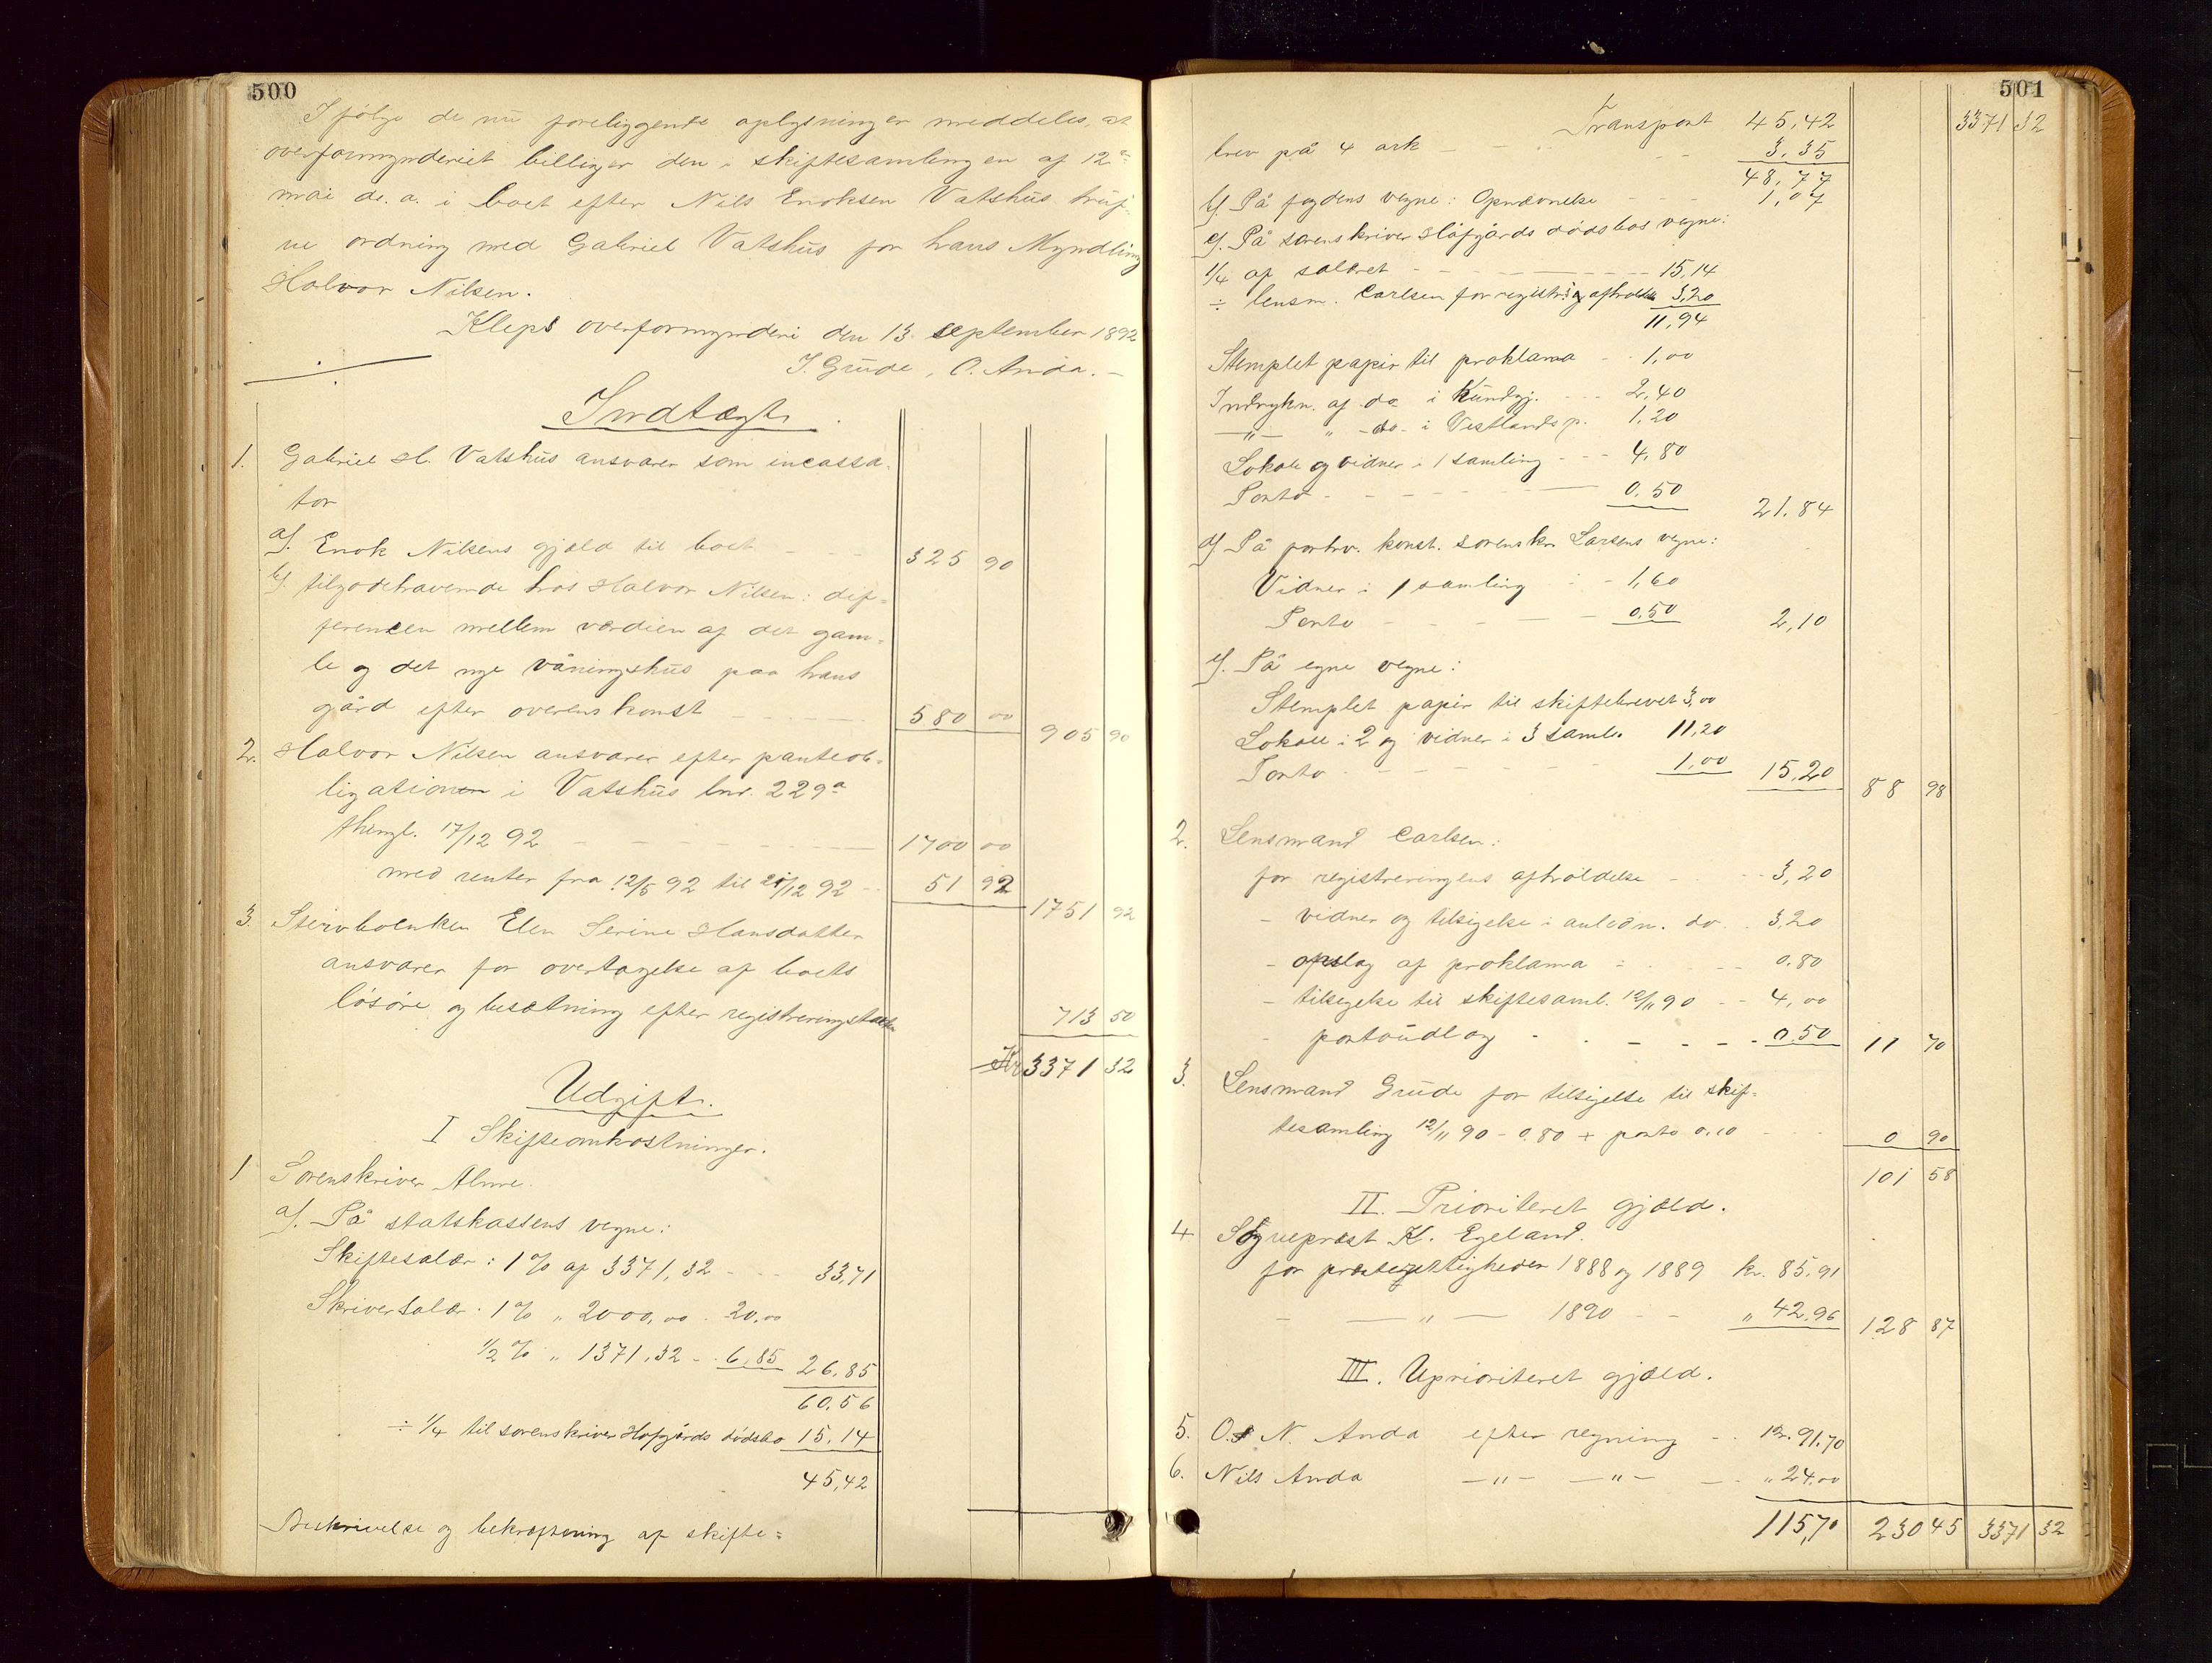 500
Ifølge de nu foreliggende oplysninger meddeles, at
overformynderiet billiger den i skiftesamlingen af 12te
mai d. a. i boet efter Nils Enoksen Vatshus trufne
ordning med Gabriel Vatshus for hans Myndling
Halvor Nilsen.
Klepps overformynderi den 13. september 1892
I. Grude, O. Anda.
Indtægt.
1. Gabriel H. Vatshus ansvarer som incassa-
tor
a). Enok Nilsens gjæld til boet 325 90
b). tilgodehavende hos Halvor Nilsen: dif-
ferencen mellem værdien af det gam-
le og det nye våningshus paa hans
gård efter overenskomst 580 00
905 90
2. Halvor Nilsen ansvarer efter panteob-
ligationen i Vatshus lnr. 229a
thingl. 17/12 92 1700 00
med renter fra 12/5 92 til 21/12 92 51 92
1751 92
3. Stervboenken Elen Serine Hansdatter
ansvarer for overtagelse af boets
løsøre og besætning efter registreringstaxten
713 50
Kr 3371 32
Udgift.
I Skifteomkostninger.
1 Sorenskriver Alme.
a). På statskassens vegne:
Skiftesalær: 1 % af 3371,32 33,71
Skriversalær. 1 % " 2000,00 . 20,00
1/2 % " 1371,32 6,85 26.85
60.56
÷ 1/4 til sorenskriver Hofgårds dødsbo 15.14
45,42
Beskrivelse og bekræftning af skifte-
501
Transport 45,42 3371 32
brev på 4 ark 3.35
48,77
b). På fogdens vegne: Opnævnelse 1,07
c). På sorenskriver Hofgårds dødsbos vegne:
1/4 af salæret 15,14
÷ lensm. Carlsen for registr. afholdelse 3,20
11,94
Stemplet papir til proklama 1,00
Indrykn. af do i Kundgj. 2,40
" " do i Vestlandsp. 1,20
Lokale og vidner i 1 samling 4,80
Porto 0.50
21.84
d) På forhv. konst. sorenskr. Larsens vegne:
Vidner i 1 samling 1,60
Porto 0.50 2,10
e). På egne vegne:
Stemplet papir til skiftebrevet 3,00
Lokale i 2 og vidner i 3 saml. 11,20
Porto 1,00 15,20 88 98
2. Lensmand Carlsen:
for registreringens afholdelse 3,20
- vidner og tilsigelse i anledn. do. 3,20
- opslag af proklama 0.80
- tilsigelse til skiftesaml. 12/11 90 4,00
- portoudlæg 0,50 11 70
3. Lensmand Grude for tilsigelse til skif-
tesamling 12/11 90 - 0.80 + porto 0,10 0 90
101 58
II. Prioriteret gjæld.
4 Sogneprest K. Egeland.
for presterettigheder 1888 og 1889 kr. 85,91
- " - 1890 " 42,96 128 87
III. Uprioriteret gjæld.
5. O. N. Anda efter regning kr. 91.70
6. Nils Anda - " - - " - " 24,00
115,70 230 45 3371 32